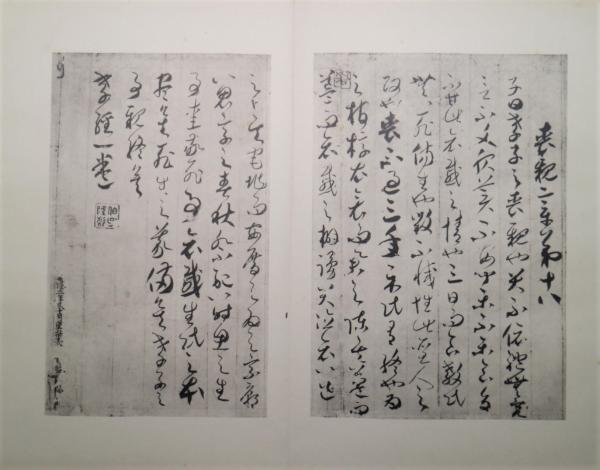 喪親章第十八
子曰孝子之喪親也哭不依禮無容
言不文服美不安聞樂不樂食旨
不甘此哀戚之情也三日而食教民
無以死傷生也毀不滅性此聖人之
政也喪不過三年示民有終也為
之棺椁衣衾而舉之陳其簠簋而
哀戚之擗踊哭泣哀以送
之卜其宅兆而安厝之為之宗廟
以鬼享之春秋祭祀以時思之生
事愛敬死事哀戚生民之本
盡矣死生之義備矣孝子之
事親終矣
孝經一卷